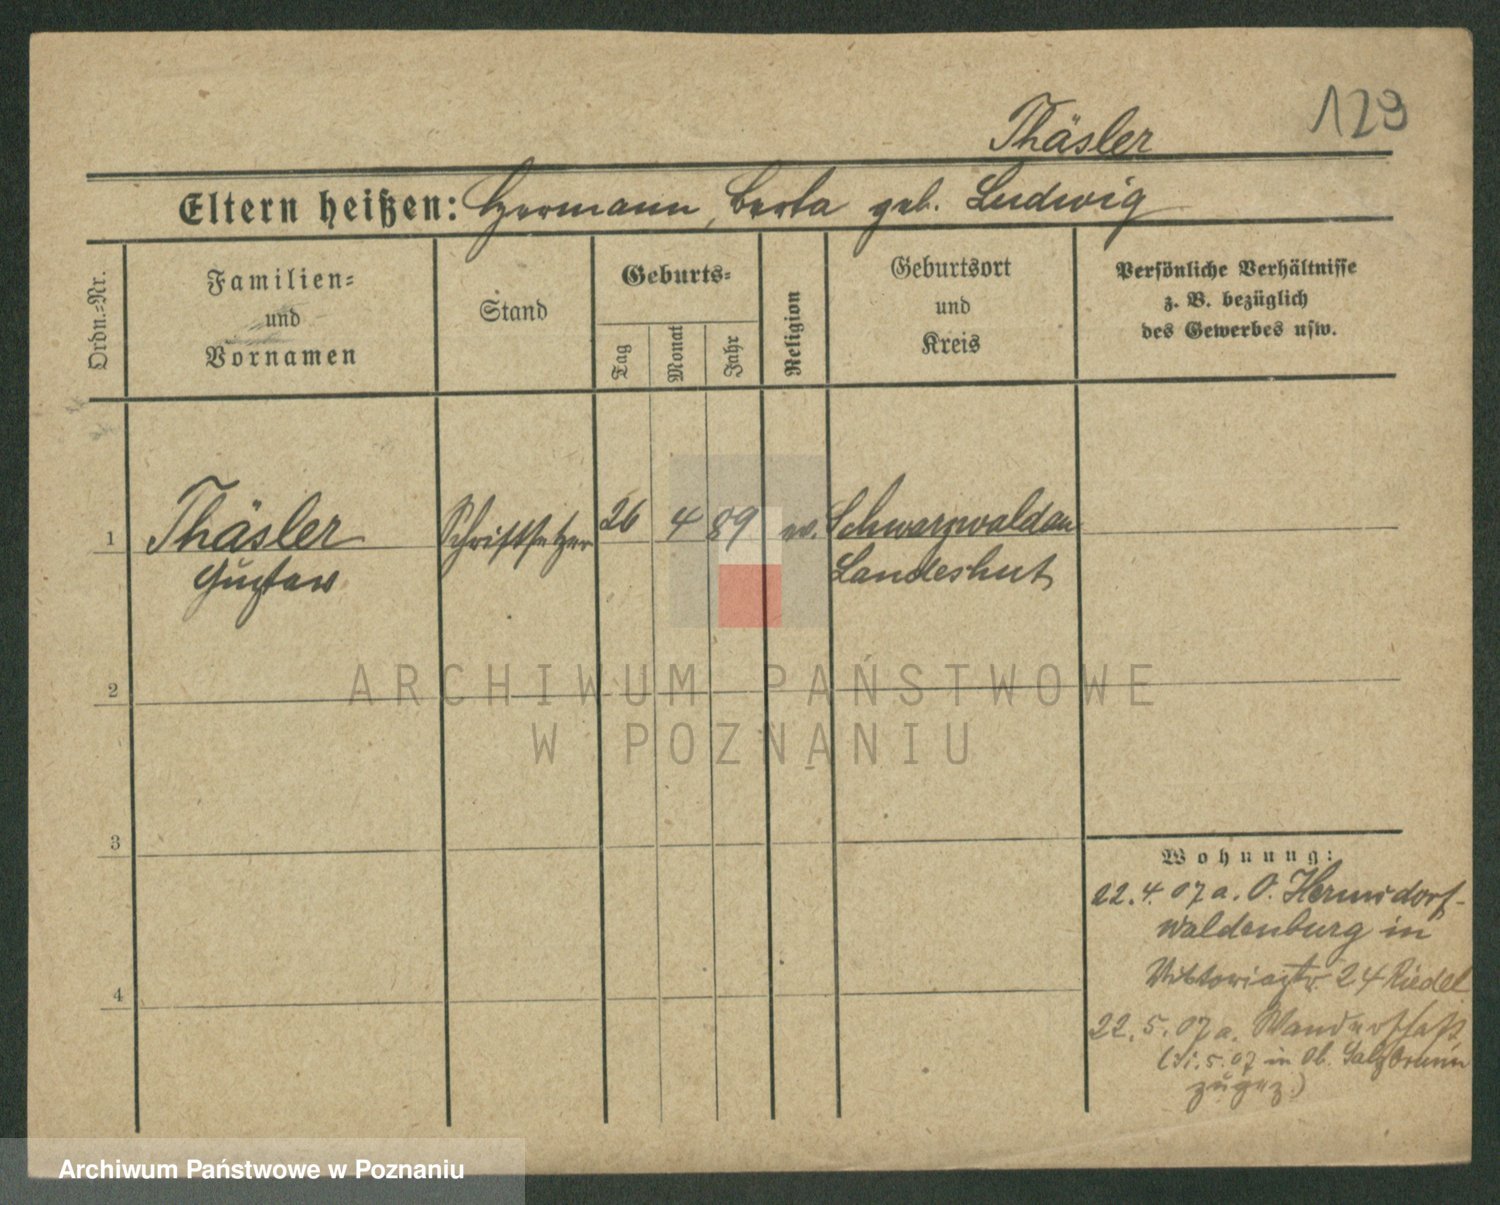 129
Thäsler
Eltern heißen: Hermann, Berta geb. Ludwig
Ordn.-Nr.
Familien-
und
Vornamen
Stand
Geburts-
Tag
Monat
Jahr
Religion
Geburtsort
und
Kreis
Persönliche Verhältnisse
z. B. bezüglich
des Gewerbes usw.
1 Thäsler Schriftsetzer 26 4 89 ev. Schwarzwaldau
Gustav Landeshut
2
3
4
Wohnung:
22. 4. 07 a. O. Hermsdorf-
Waldenburg in
Viktoriastr. 24 Riedel
22. 5. 07 a. Wanderschaft
5. 07 in Ob. Salzbrunn
zugez.)
ARCHIWUM PAŃSTWOWE
W POZNANIU
Archiwum Państwowe w Poznaniu